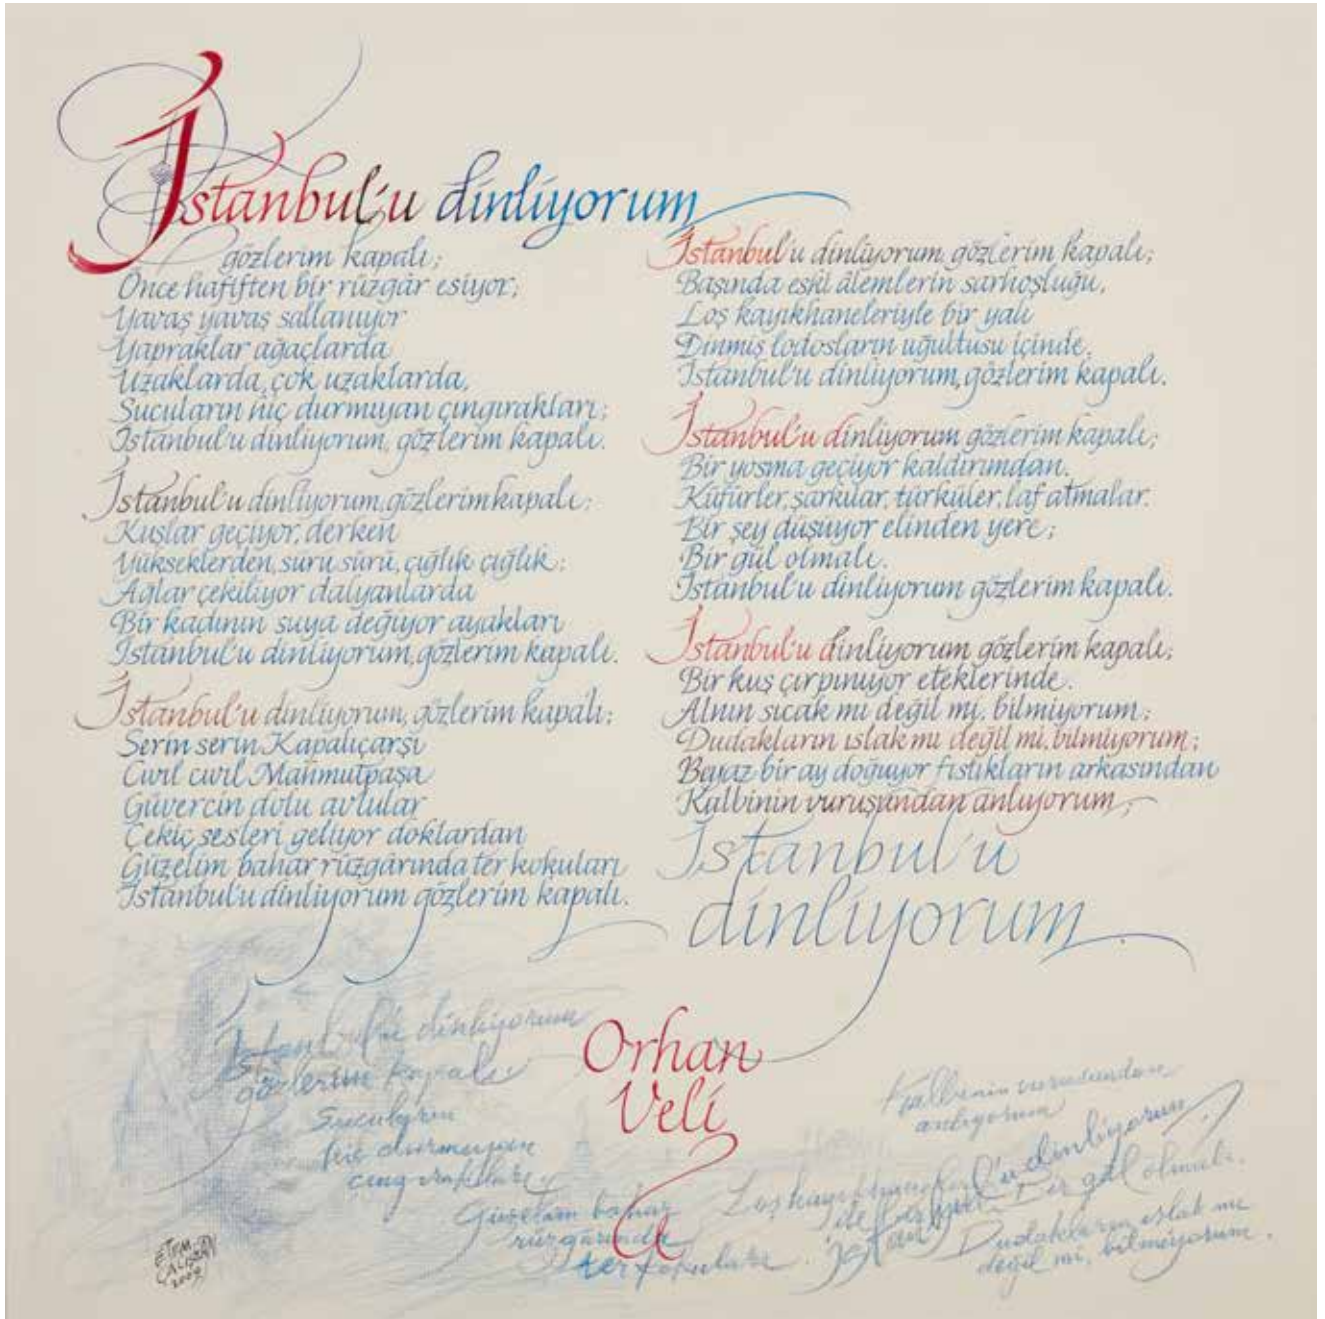 İstanbul'u dinliyorum
gözlerim kapalı;
Önce hafiften bir rüzgâr esiyor;
Yavaş yavaş sallanıyor
Yapraklar ağaçlarda
Uzaklarda, çok uzaklarda,
Sucuların hiç durmıyan çıngırakları;
İstanbul'u dinliyorum, gözlerim kapalı.
İstanbul'u dinliyorum, gözlerim kapalı;
Kuşlar geçiyor, derken
Yükseklerden, sürü sürü, çığlık çığlık;
Ağlar çekiliyor dalyanlarda
Bir kadının suya değiyor ayakları
İstanbul'u dinliyorum, gözlerim kapalı.
İstanbul'u dinliyorum, gözlerim kapalı;
Serin serin Kapalıçarşı
Cıvıl cıvıl Mahmutpaşa
Güvercin dolu avlular
Çekiç sesleri geliyor doklardan
Güzelim bahar rüzgârında ter kokuları
İstanbul'u dinliyorum gözlerim kapalı.
İstanbul'u dinliyorum, gözlerim kapalı;
Başında eski âlemlerin sarhoşluğu,
Loş kayıkhaneleriyle bir yalı
Dinmiş lodosların uğultusu içinde,
İstanbul'u dinliyorum, gözlerim kapalı.
İstanbul'u dinliyorum gözlerim kapalı;
Bir yosma geçiyor kaldırımdan.
Küfürler, şarkılar, türküler, laf atmalar.
Bir şey düşüyor elinden yere;
Bir gül olmalı.
İstanbul'u dinliyorum gözlerim kapalı.
İstanbul'u dinliyorum gözlerim kapalı;
Bir kuş çırpınıyor eteklerinde.
Alnın sıcak mı değil mi, bilmiyorum;
Dudakların ıslak mı değil mi, bilmiyorum;
Beyaz bir ay doğuyor fıstıkların arkasından
Kalbinin vuruşundan anlıyorum;
İstanbul'u
dinliyorum.
Orhan
Veli
İstanbul'u dinliyorum
gözlerim kapalı
Sucuların
hiç durmıyan
çıngırakları
Güzelim bahar
rüzgârında
ter kokuları.
Kalbinin vuruşundan
anlıyorum
Loş kayıkhaneleriyle
İstanbul'u dinliyorum
Bir gül olmalı.
Dudakların ıslak mı
değil mi, bilmiyorum.
ETEM
ÇALIŞKAN
2009